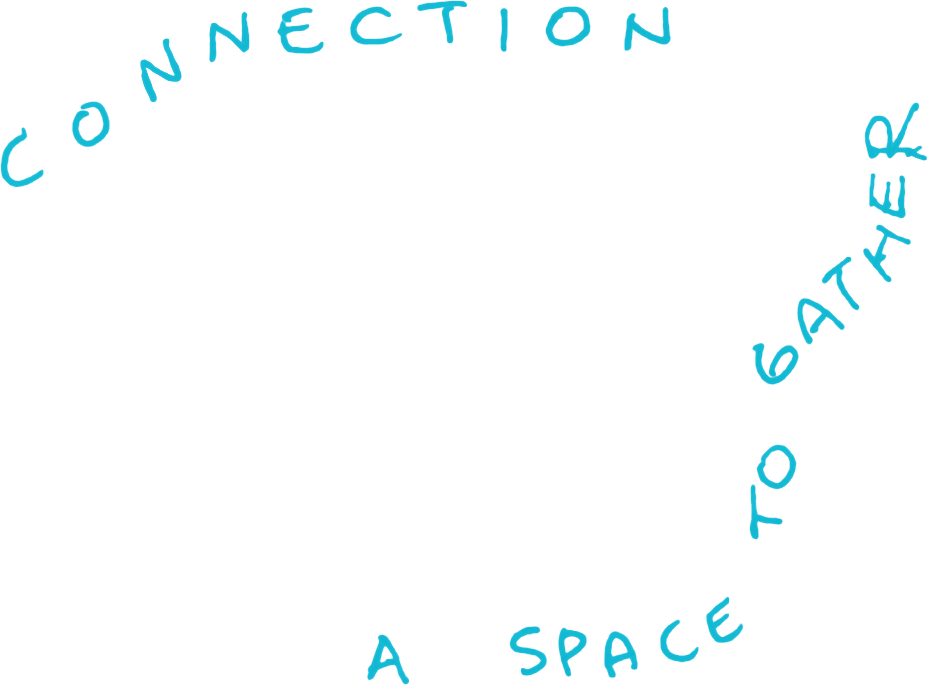 CONNECTION
A SPACE TO GATHER